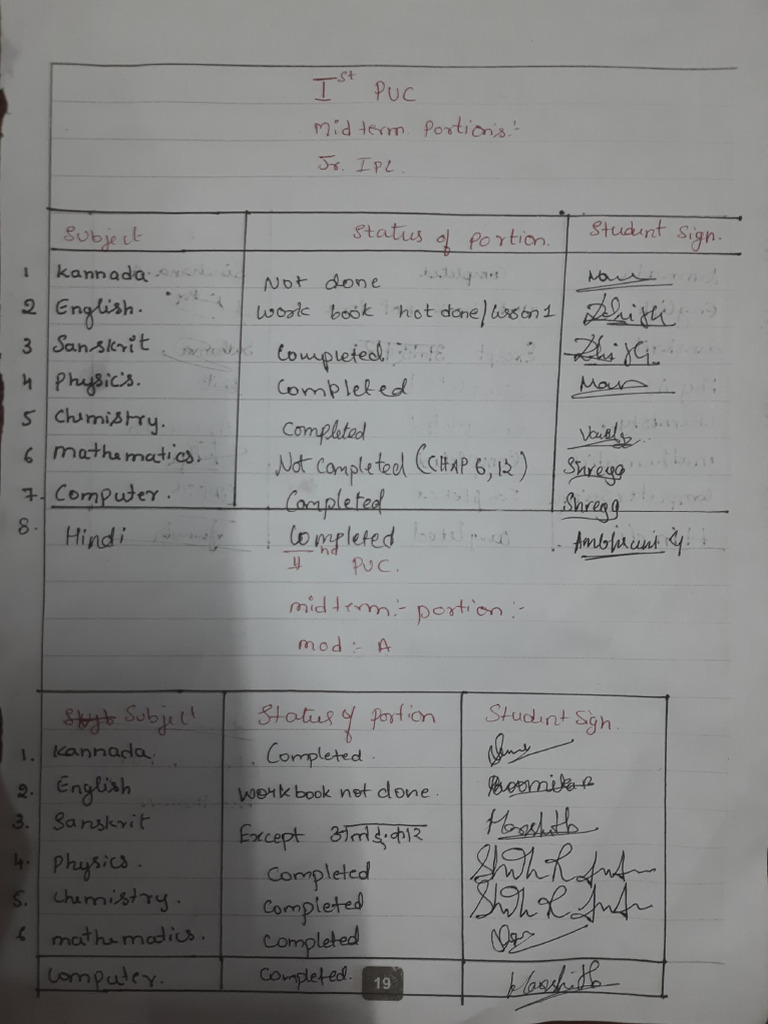 Ist PUC
midterm portion's:-
Jr. IPL.
Subject Status of portion. Student Sign.
1 Kannada. Not done
2 English. work book not done/lesson 1
3 Sanskrit completed
4 Physics. completed
5 Chemistry. completed
6 mathematics. Not completed (CHAP 6, 12)
7. Computer. Completed Shreya
8. Hindi Completed
IInd PUC.
midterm:- portion:-
mod:- A
Subject Status of portion Student Sign.
1. Kannada. Completed.
2. English workbook not done.
3. Sanskrit Except अलङ्कार
4. Physics. Completed
5. Chemistry. Completed
6 mathematics. Completed
Computer. Completed.
19